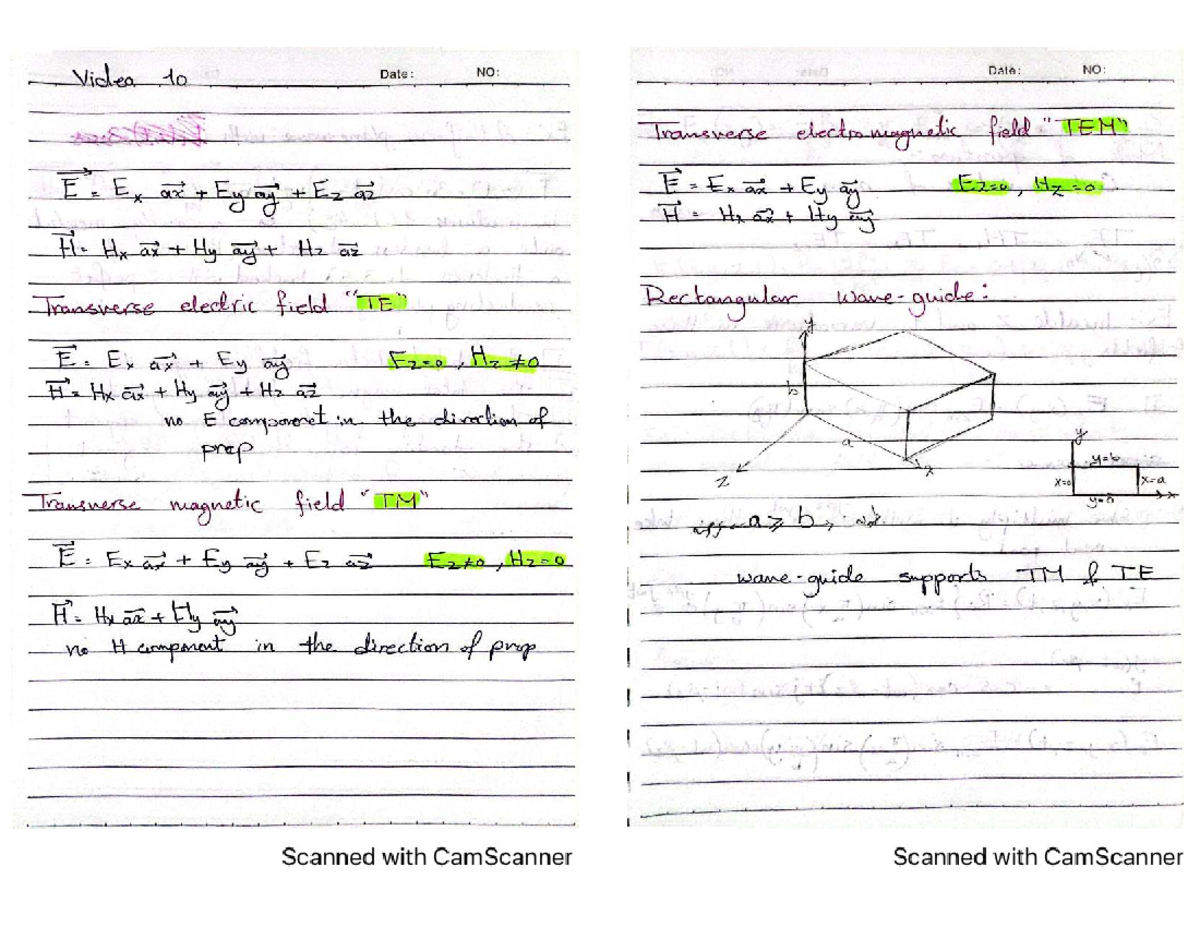 Video 10
Date: NO:
E⃗ = Ex a⃗x + Ey a⃗y + Ez a⃗z
H⃗ = Hx a⃗x + Hy a⃗y + Hz a⃗z
Transverse electric field "TE"
E⃗ = Ex a⃗x + Ey a⃗y Ez=0, Hz≠0
H⃗ = Hx a⃗x + Hy a⃗y + Hz a⃗z
no E component in the direction of
prop
Transverse magnetic field "TM"
E⃗ = Ex a⃗x + Ey a⃗y + Ez a⃗z Ez≠0, Hz=0
H⃗ = Hx a⃗x + Hy a⃗y
no H component in the direction of prop
Scanned with CamScanner
Date: NO:
Transverse electromagnetic field "TEM"
E⃗ = Ex a⃗x + Ey a⃗y Ez=0, Hz=0
H⃗ = Hx a⃗x + Hy a⃗y
Rectangular wave-guide:
y
b
a
x
z
y
y=b
x=0
x=a
y=0
x
a ⩾ b
wave-guide supports TM & TE
Scanned with CamScanner